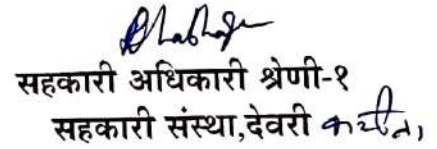 सहकारी अधिकारी श्रेणी-१
सहकारी संस्था,देवरी करीता,